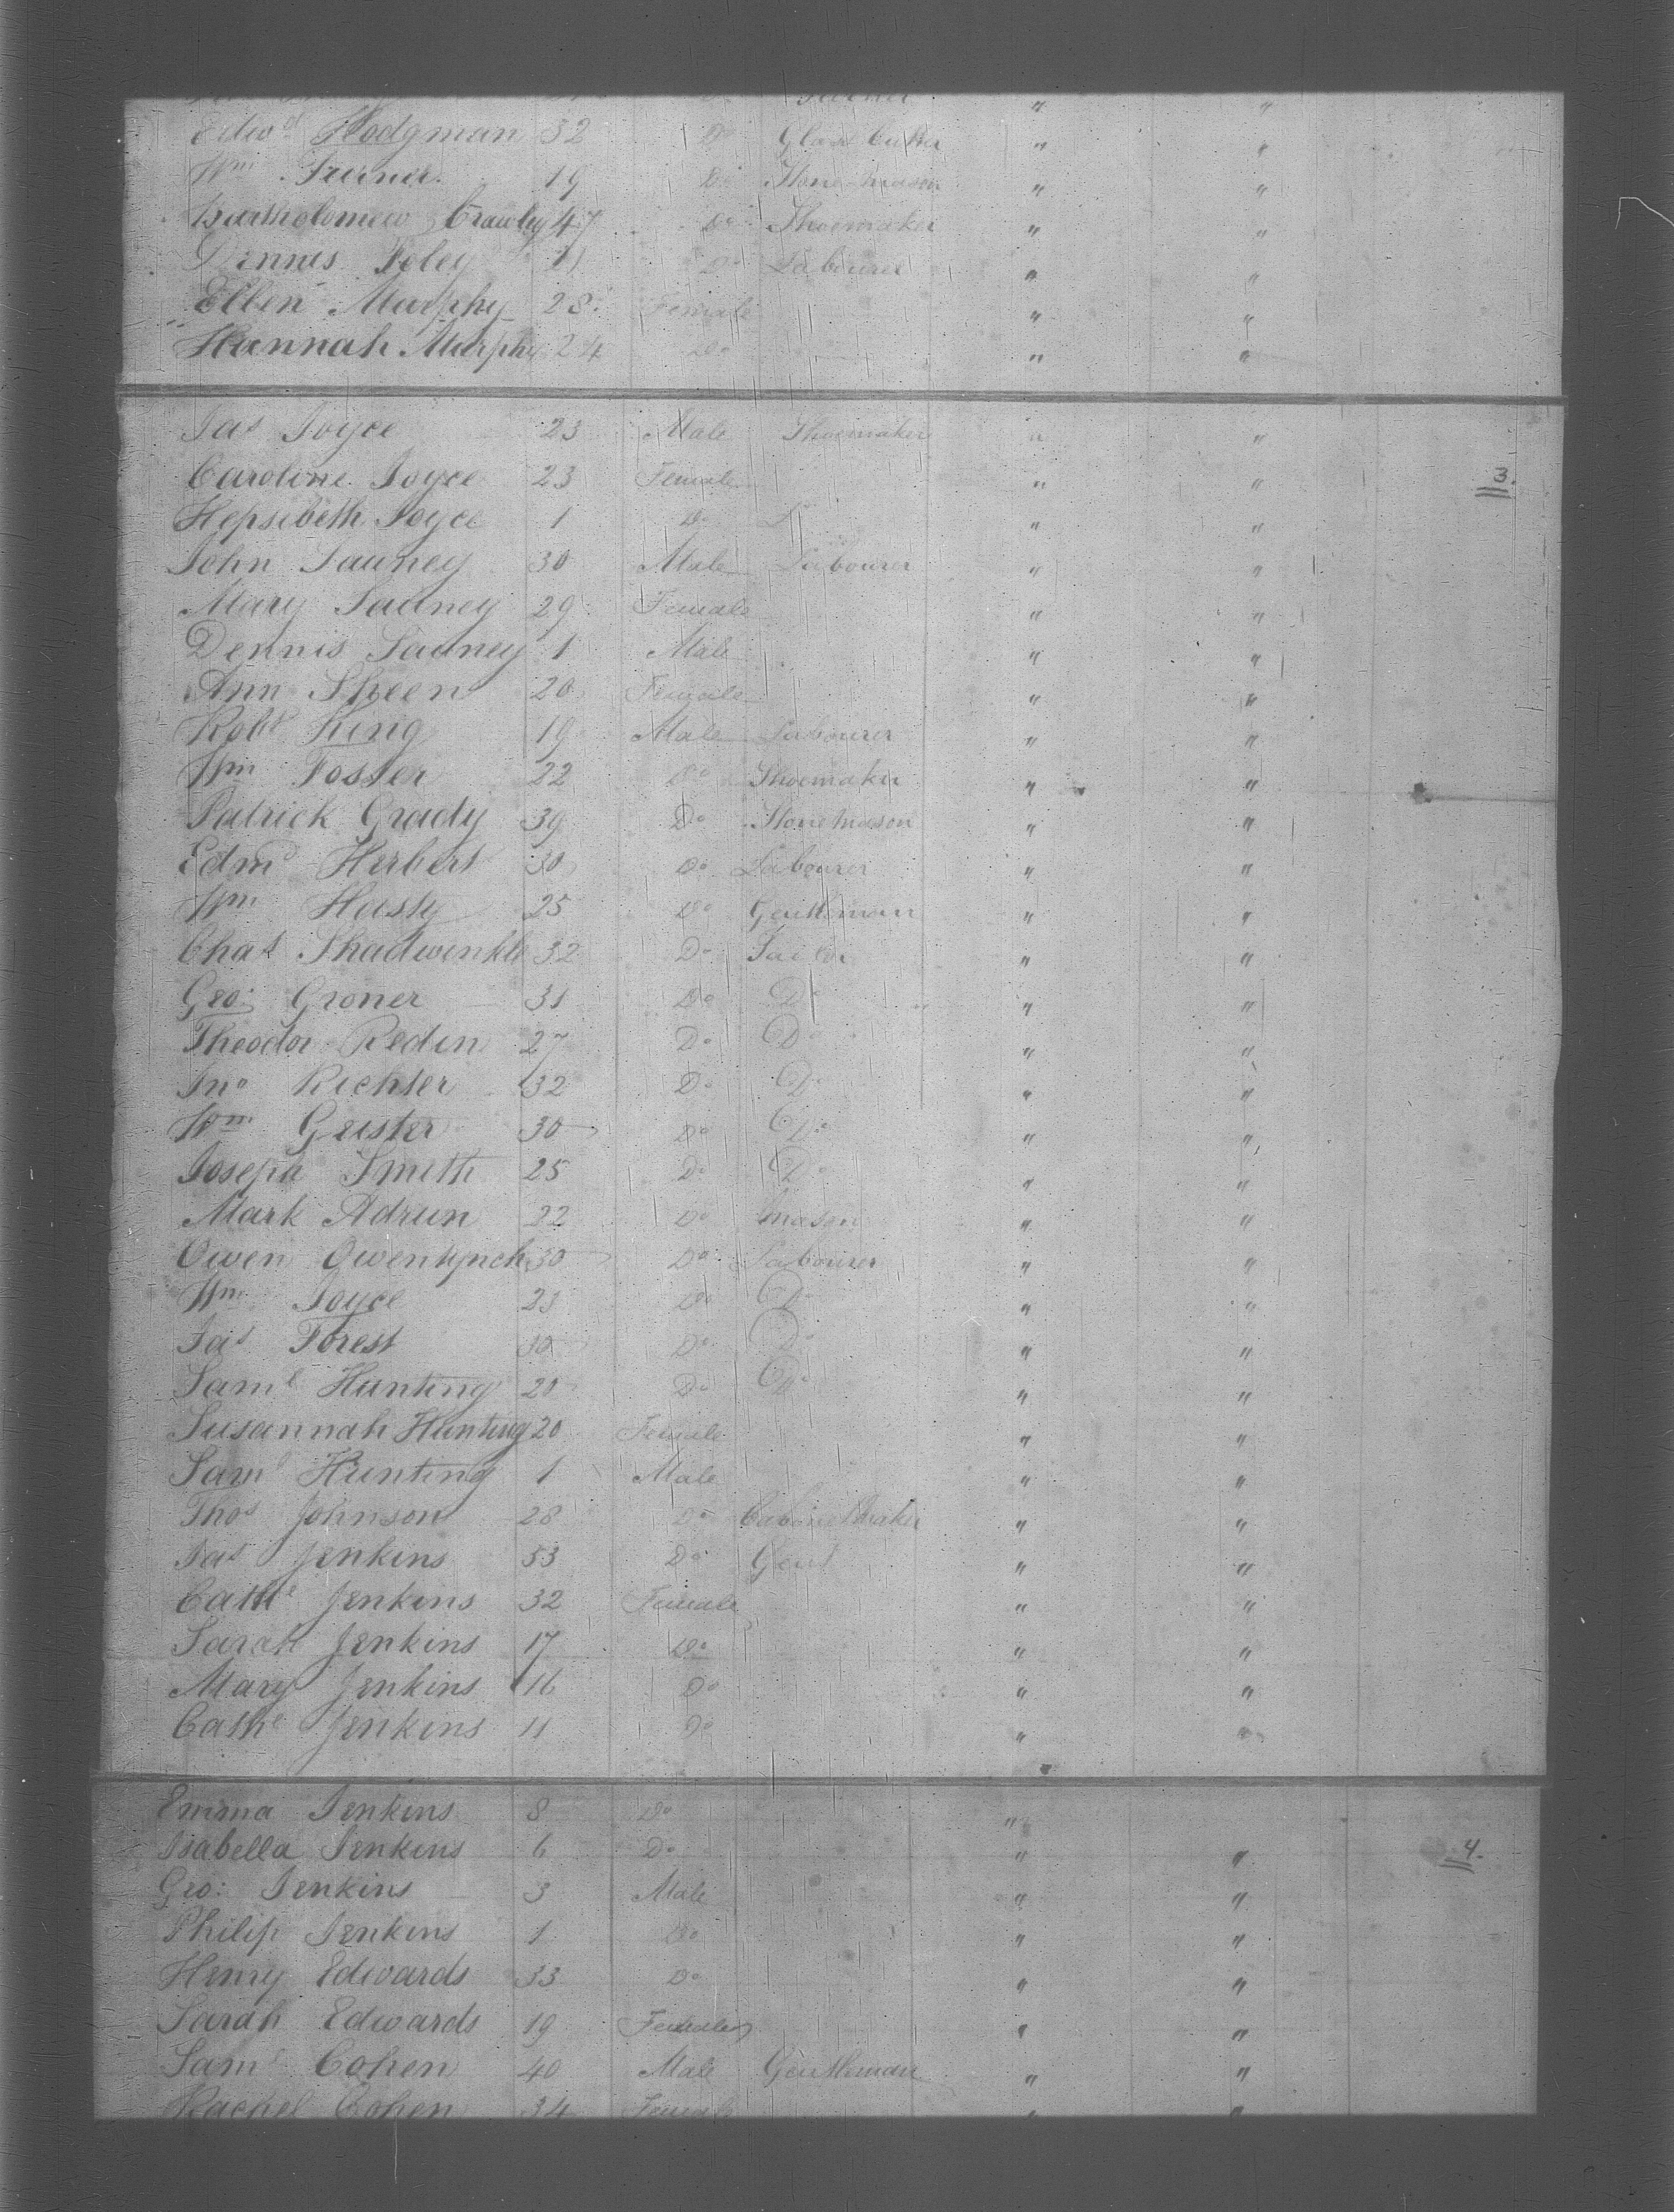 Edwd Hodgman 32 Do Glass Cutter " "
Wm Turner 19 Do Stone-mason " "
Bartholomew Crawley 47 Do Shoemaker " "
Dennis Foley Do Labourer " "
Ellen Murphy 28 Female " "
Hannah Murphy 24 Do " "
Jas Joyce 23 Male Shoemaker " "
Caroline Joyce 23 Female " " 3.
Hepsibeth Joyce 1 Do " "
John 30 Male Labourer " "
Mary 29 Female " "
Dennis 1 Male " "
Ann Sheen 20 Female " "
Robt King 19 Male Labourer " "
Wm Foster 22 Do Shoemaker " "
Patrick Grady 39 Do Stonemason " "
Edmd Herbert 30 Do Labourer " "
Wm Hasty 25 Do Gentleman " "
Chas Shadwinkle 32 Do Tailor " "
Geo: Groner 31 Do Do " "
Theodor Redin 27 Do Do " "
Jno Richter 32 Do Do " "
Wm Geister 30 Do Do " "
Joseph Smith 25 Do Do " "
Mark Adrun 22 Do Mason " "
Owen Owenlynch 30 Do Labourer " "
Wm Joyce 23 Do Do " "
Jas Forest 30 Do Do " "
Saml Hunting 20 Do Do " "
Susannah Hunting 20 Female " "
Saml Hunting 1 Male " "
Thos Johnson 28 Do Cabinet Maker " "
Jas Jenkins 53 Do Gent " "
Cathe Jenkins 32 Female " "
Sarah Jenkins 17 Do " "
Mary Jenkins 16 Do " "
Cathe Jenkins 11 Do " "
Emma Jenkins 8 Do "
Isabella Jenkins 6 Do " " 4.
Geo: Jenkins 3 Male " "
Philip Jenkins 1 Do " "
Henry Edwards 33 Do " "
Sarah Edwards 19 Female " "
Saml Cohen 40 Male Gentleman " "
Rachel Cohen 34 Female " "